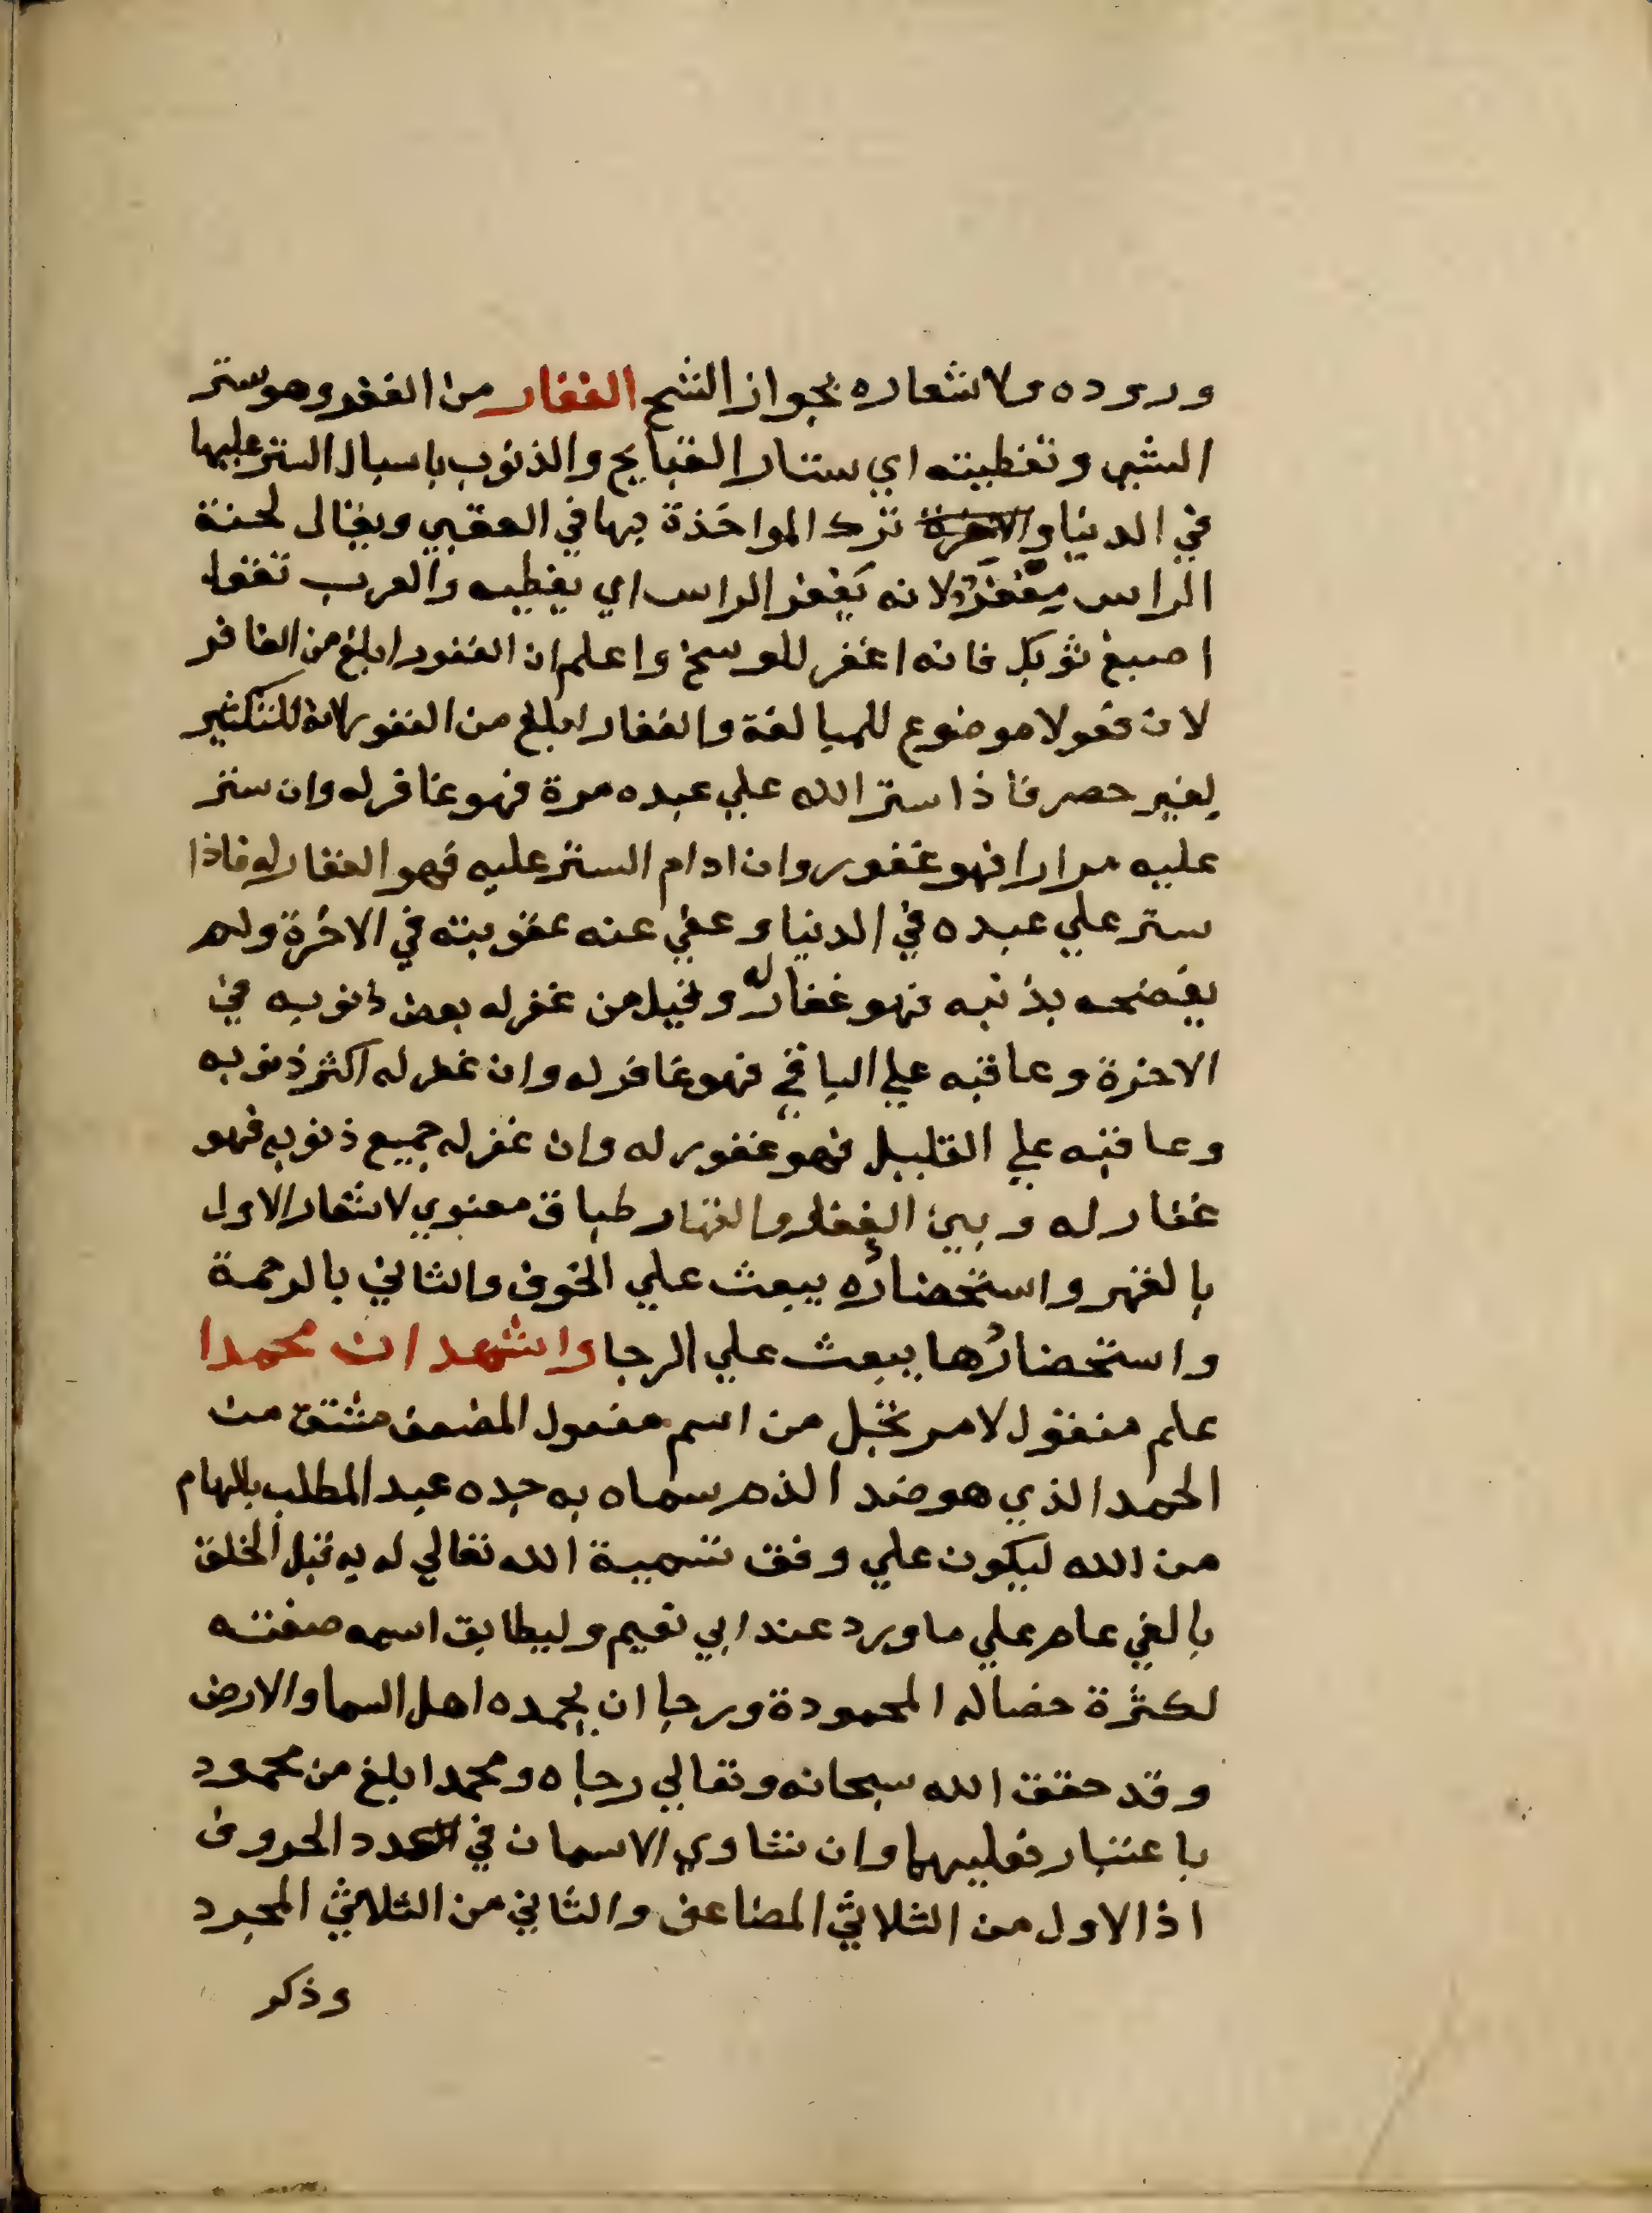 وروده ولاشعاره بجواز النسخ الغفار من الغفر وهو ستر
الشي وتغطيته اي ستار القبايح والذنوب باسبال الستر عليها
في الدنيا وترك المواخذة بها في العقبي ويقال لجنة
الراس مغفر لانه يغفر الراس اي يغطيه والعرب تقول
اصبغ ثوبك فانه اغفر للوسخ واعلم ان الغفور ابلغ من الغافر
لان فعولا موضوع للمبالغة والغفار ابلغ من الغفور لانه للتكثير
لغير حصر فاذا ستر الله علي عبده مرة فهو غافر له وان ستر
عليه مرارا فهو غفور وان ادام الستر عليه فهو الغفار له فاذا
ستر علي عبده في الدنيا وعفي عنه عقوبته في الاخرة ولم
يفضحه بذنبه فهو غفار له وقيل من غفر له بعض ذنوبه في
الاخرة وعاقبه علي الباقي فهو غافر له وان غفر له اكثر ذنوبه
وعاقبه علي القليل فهو غفور له وان غفر له جميع ذنوبه فهو
غفار له وبين الغفار والقهار طباق معنوي لاشعار الاول
بالقهر واستحضاره يبعث علي الخوف والثاني بالرحمة
واستحضارها يبعث علي الرجا واشهد ان محمدا
علم منقول لا مرتجل من اسم مفعول المضعف مشتق من
الحمد الذي هو ضد الذم سماه به جده عبد المطلب بالهام
من الله ليكون علي وفق تسمية الله تعالي له به قبل الخلق
بالفي عام علي ما ورد عند ابي نعيم وليطابق اسمه صفته
لكثرة خصاله المحمودة ورجا ان يحمده اهل السما والارض
وقد حقق الله سبحانه وتعالي رجاه ومحمد ابلغ من محمود
باعتبار فعليهما وان تساوي الاسمان في عدد الحروف
اذ الاول من الثلاثي المضاعف والثاني من الثلاثي المجرد
وذكر